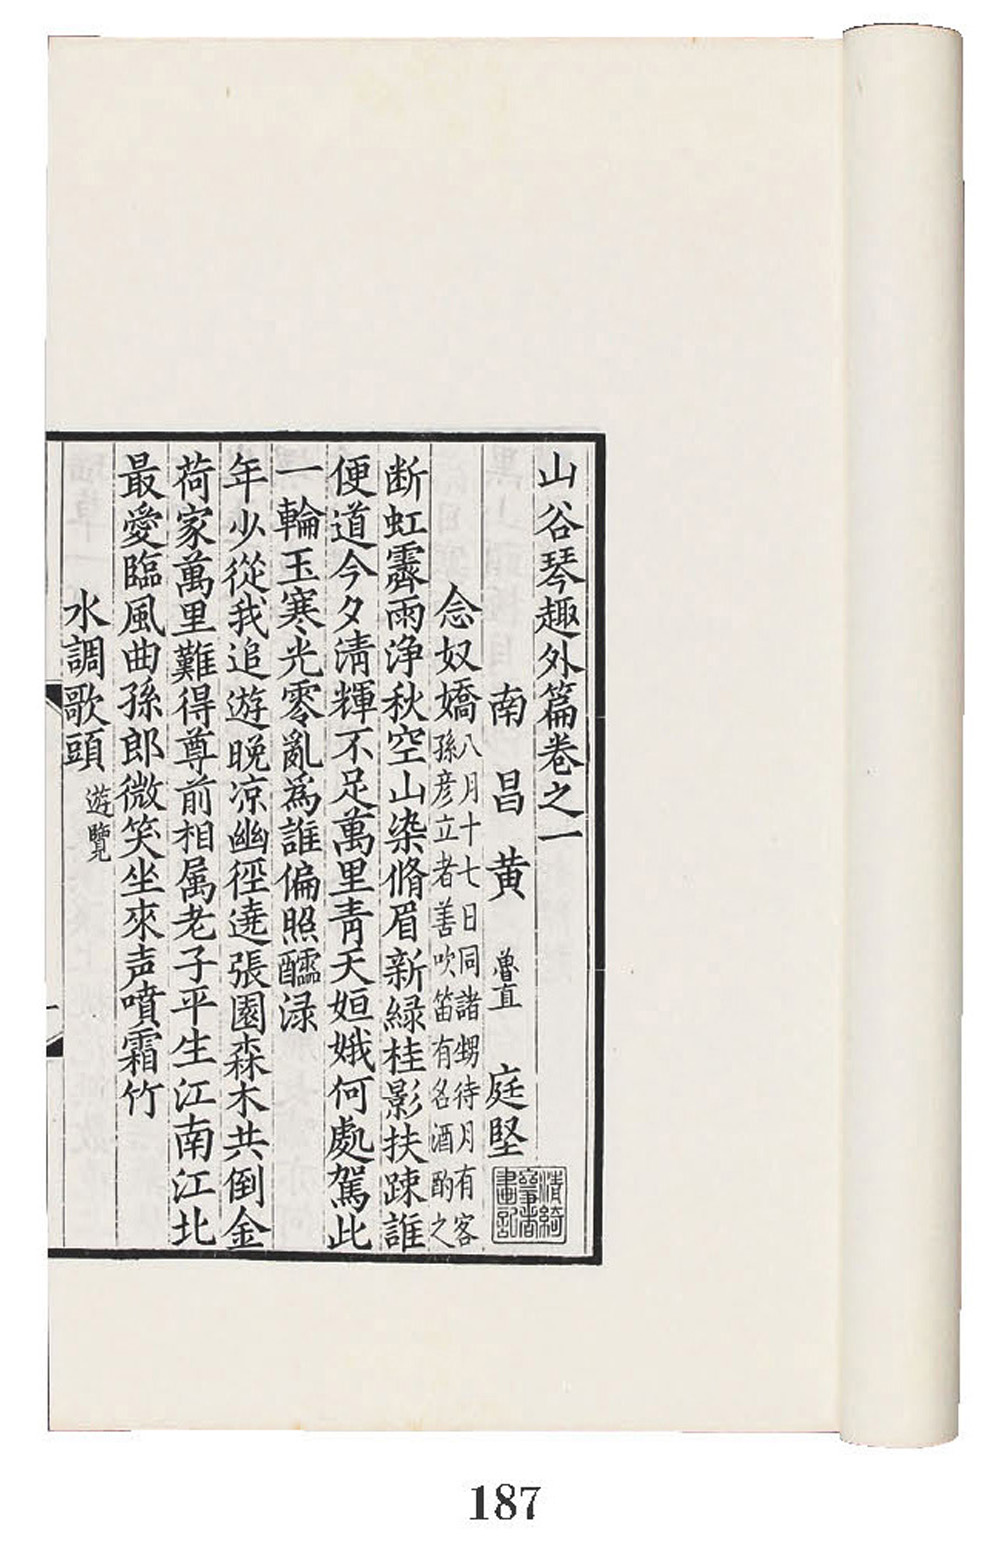 山谷琴趣外篇卷之一
南昌黄魯直庭堅
念奴嬌八月十七日同諸甥待月有客
孫彦立者善吹笛有名酒酌之
断虹霽雨浄秋空山染脩眉新緑桂影扶踈誰
便道今夕清輝不足萬里青天姮娥何處駕此
一輪玉寒光零亂爲誰偏照醽渌
年少從我追遊晩凉幽徑遶張園森木共倒金
荷家萬里難得尊前相属老子平生江南江北
最愛臨風曲孫郎微笑坐來声噴霜竹
水調歌頭遊覽
187